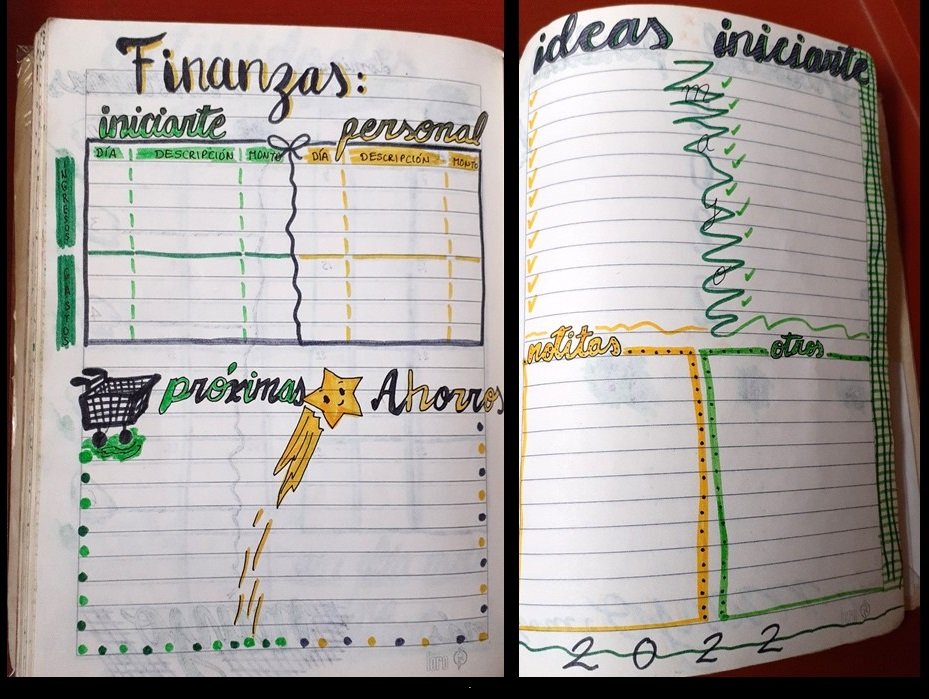 Finanzas:
iniciarte personal
DÍA DESCRIPCIÓN MONTO DÍA DESCRIPCIÓN MONTO
INGRESOS
GASTOS
próximas Ahorros
ideas iniciarte
notitas otros
2022